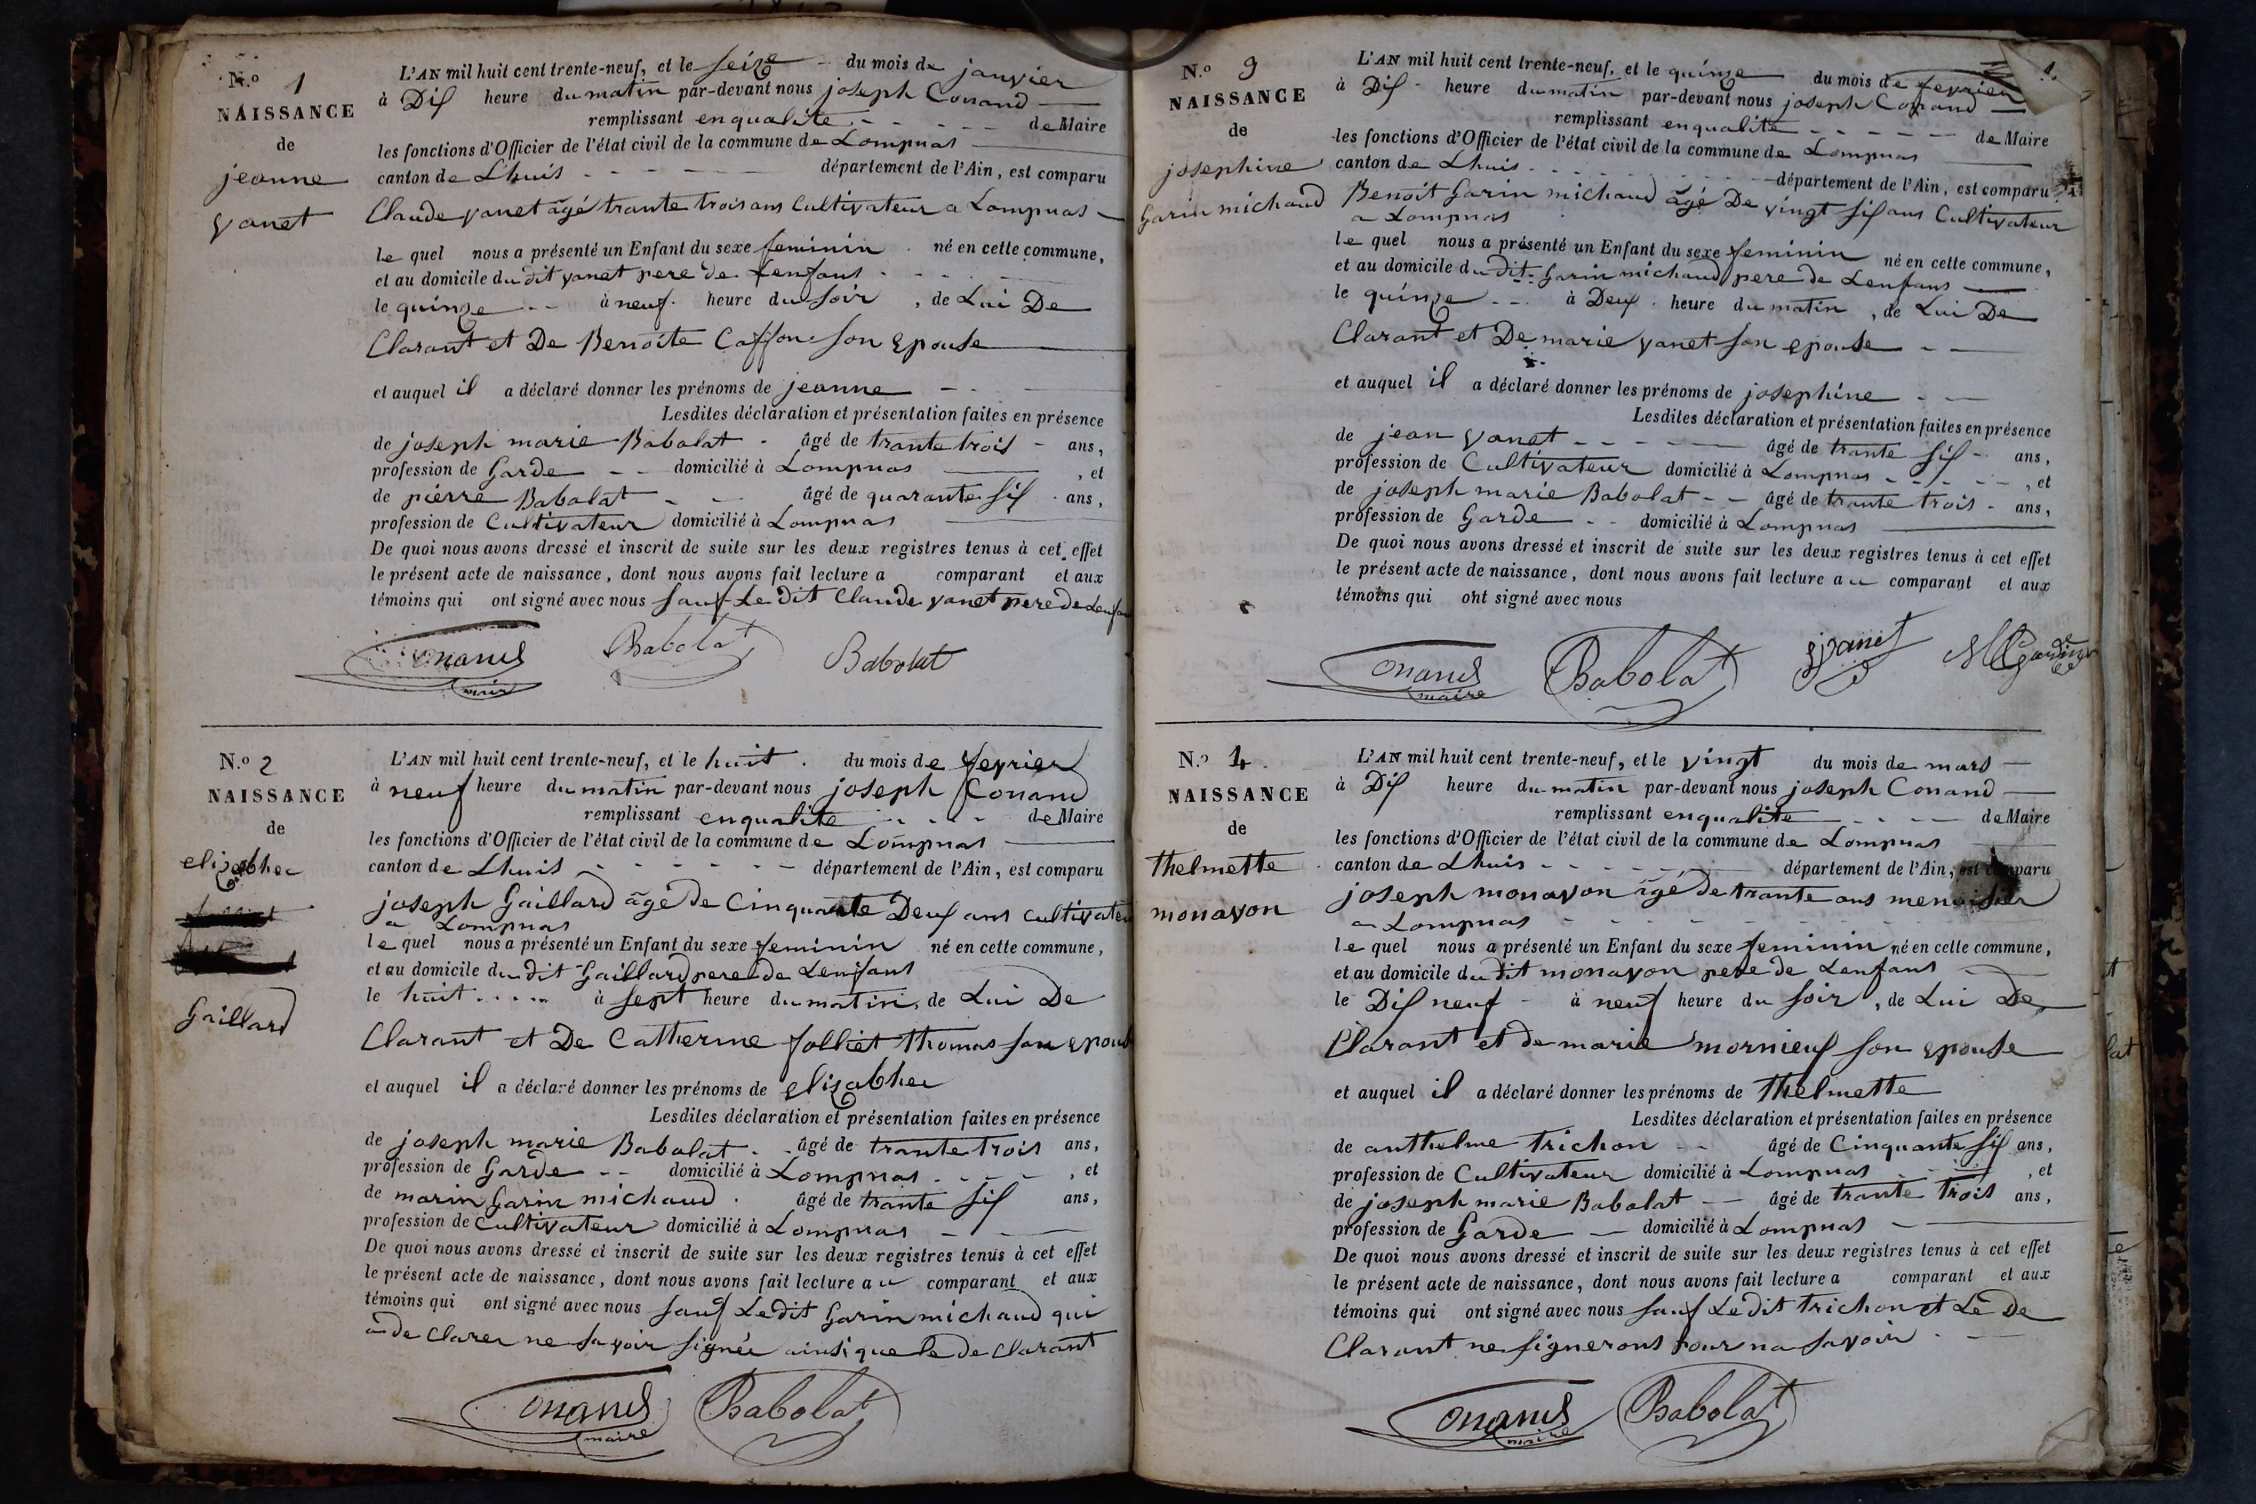 N.o 1
NAISSANCE
de
jeanne
vanet
L'AN mil huit cent trente-neuf, et le seize du mois de janvier
à Dix heure du matin par-devant nous joseph Conand
remplissant enqualite de Maire
les fonctions d'Officier de l'état civil de la commune de Lompnas
canton de Lhuis département de l'Ain, est comparu
Claude vanet âgé trante trois ans Cultivateur a Lompnas
le quel nous a présenté un Enfant du sexe feminin né en cette commune,
et au domicile du dit vanet pere de Lenfant
le quinze à neuf heure du soir, de Lui De
Clarant et De Benoite Caffon son Epouse
et auquel il a déclaré donner les prénoms de jeanne
Lesdites déclaration et présentation faites en présence
de joseph marie Babolat âgé de trante trois ans,
profession de Garde domicilié à Lompnas, et
de pierre Babolat âgé de quarante six ans,
profession de Cultivateur domicilié à Lompnas
De quoi nous avons dressé et inscrit de suite sur les deux registres tenus à cet effet
le présent acte de naissance, dont nous avons fait lecture a comparant et aux
témoins qui ont signé avec nous sauf Le dit Claude vanet pere de Lenfan
Conand Babolat Babolat
maire
N.o 2
NAISSANCE
de
elizabhec
Gaillard
L'AN mil huit cent trente-neuf, et le huit du mois de fevrier
à neuf heure du matin par-devant nous joseph Conand
remplissant enqualite de Maire
les fonctions d'Officier de l'état civil de la commune de Lompnas
canton de Lhuis département de l'Ain, est comparu
joseph Gaillard âgé de Cinquante Deux ans cultivateu
a Lompnas
le quel nous a présenté un Enfant du sexe feminin né en cette commune,
et au domicile du dit Gaillard pere de Lenfant
le huit à sept heure du matin, de Lui De
Clarant et De Catherine folliet thomas son epous
et auquel il a déclaré donner les prénoms de elizabhec
Lesdites déclaration et présentation faites en présence
de joseph marie Babolat âgé de trante trois ans,
profession de Garde domicilié à Lompnas, et
de marin Garin michaud âgé de trante six ans,
profession de Cultivateur domicilié à Lompnas
De quoi nous avons dressé et inscrit de suite sur les deux registres tenus à cet effet
le présent acte de naissance, dont nous avons fait lecture a u comparant et aux
témoins qui ont signé avec nous sauf Ledit Garin michaud qui
a de Clarer ne savoir signée ainsi que le de Clarant
Conand Babolat
maire
N.o 3
NAISSANCE
de
josephine
Garin michaud
L'AN mil huit cent trente-neuf, et le quinze du mois de fevrier
à Dix heure du matin par-devant nous joseph Conand
remplissant enqualite de Maire
les fonctions d'Officier de l'état civil de la commune de Lompnas
canton de Lhuis département de l'Ain, est comparu
Benoit Garin michaud âgé De vingt six ans Cultivateur
a Lompnas
le quel nous a présenté un Enfant du sexe feminin né en cette commune,
et au domicile du dit Garin michaud pere de Lenfans
le quinze à Deux heure du matin, de Lui De
Clarant et De marie vanet son epouse
et auquel il a déclaré donner les prénoms de josephine
Lesdites déclaration et présentation faites en présence
de jean vanet âgé de trante six ans,
profession de Cultivateur domicilié à Lompnas, et
de joseph marie Babolat âgé de trante trois ans,
profession de Garde domicilié à Lompnas
De quoi nous avons dressé et inscrit de suite sur les deux registres tenus à cet effet
le présent acte de naissance, dont nous avons fait lecture a u comparant et aux
témoins qui ont signé avec nous
Conand Babolat jvanet
maire
N.o 4
NAISSANCE
de
thelmette
monavon
L'AN mil huit cent trente-neuf, et le vingt du mois de mars
à Dix heure du matin par-devant nous joseph Conand
remplissant enqualite de Maire
les fonctions d'Officier de l'état civil de la commune de Lompnas
canton de Lhuis département de l'Ain, est comparu
joseph monavon âgé de trante ans menuisier
a Lompnas
le quel nous a présenté un Enfant du sexe feminin né en cette commune,
et au domicile du dit monavon pere de Lenfans
le Dix neuf à neuf heure du soir, de Lui De
Clarant et de marie mornieux son epouse
et auquel il a déclaré donner les prénoms de thelmette
Lesdites déclaration et présentation faites en présence
de anthelme trichon âgé de Cinquante six ans,
profession de Cultivateur domicilié à Lompnas, et
de joseph marie Babolat âgé de trante trois ans,
profession de Garde domicilié à Lompnas
De quoi nous avons dressé et inscrit de suite sur les deux registres tenus à cet effet
le présent acte de naissance, dont nous avons fait lecture a comparant et aux
témoins qui ont signé avec nous sauf Le dit trichon et Le De
Clarant ne signerons pour na savoir
Conand Babolat
maire